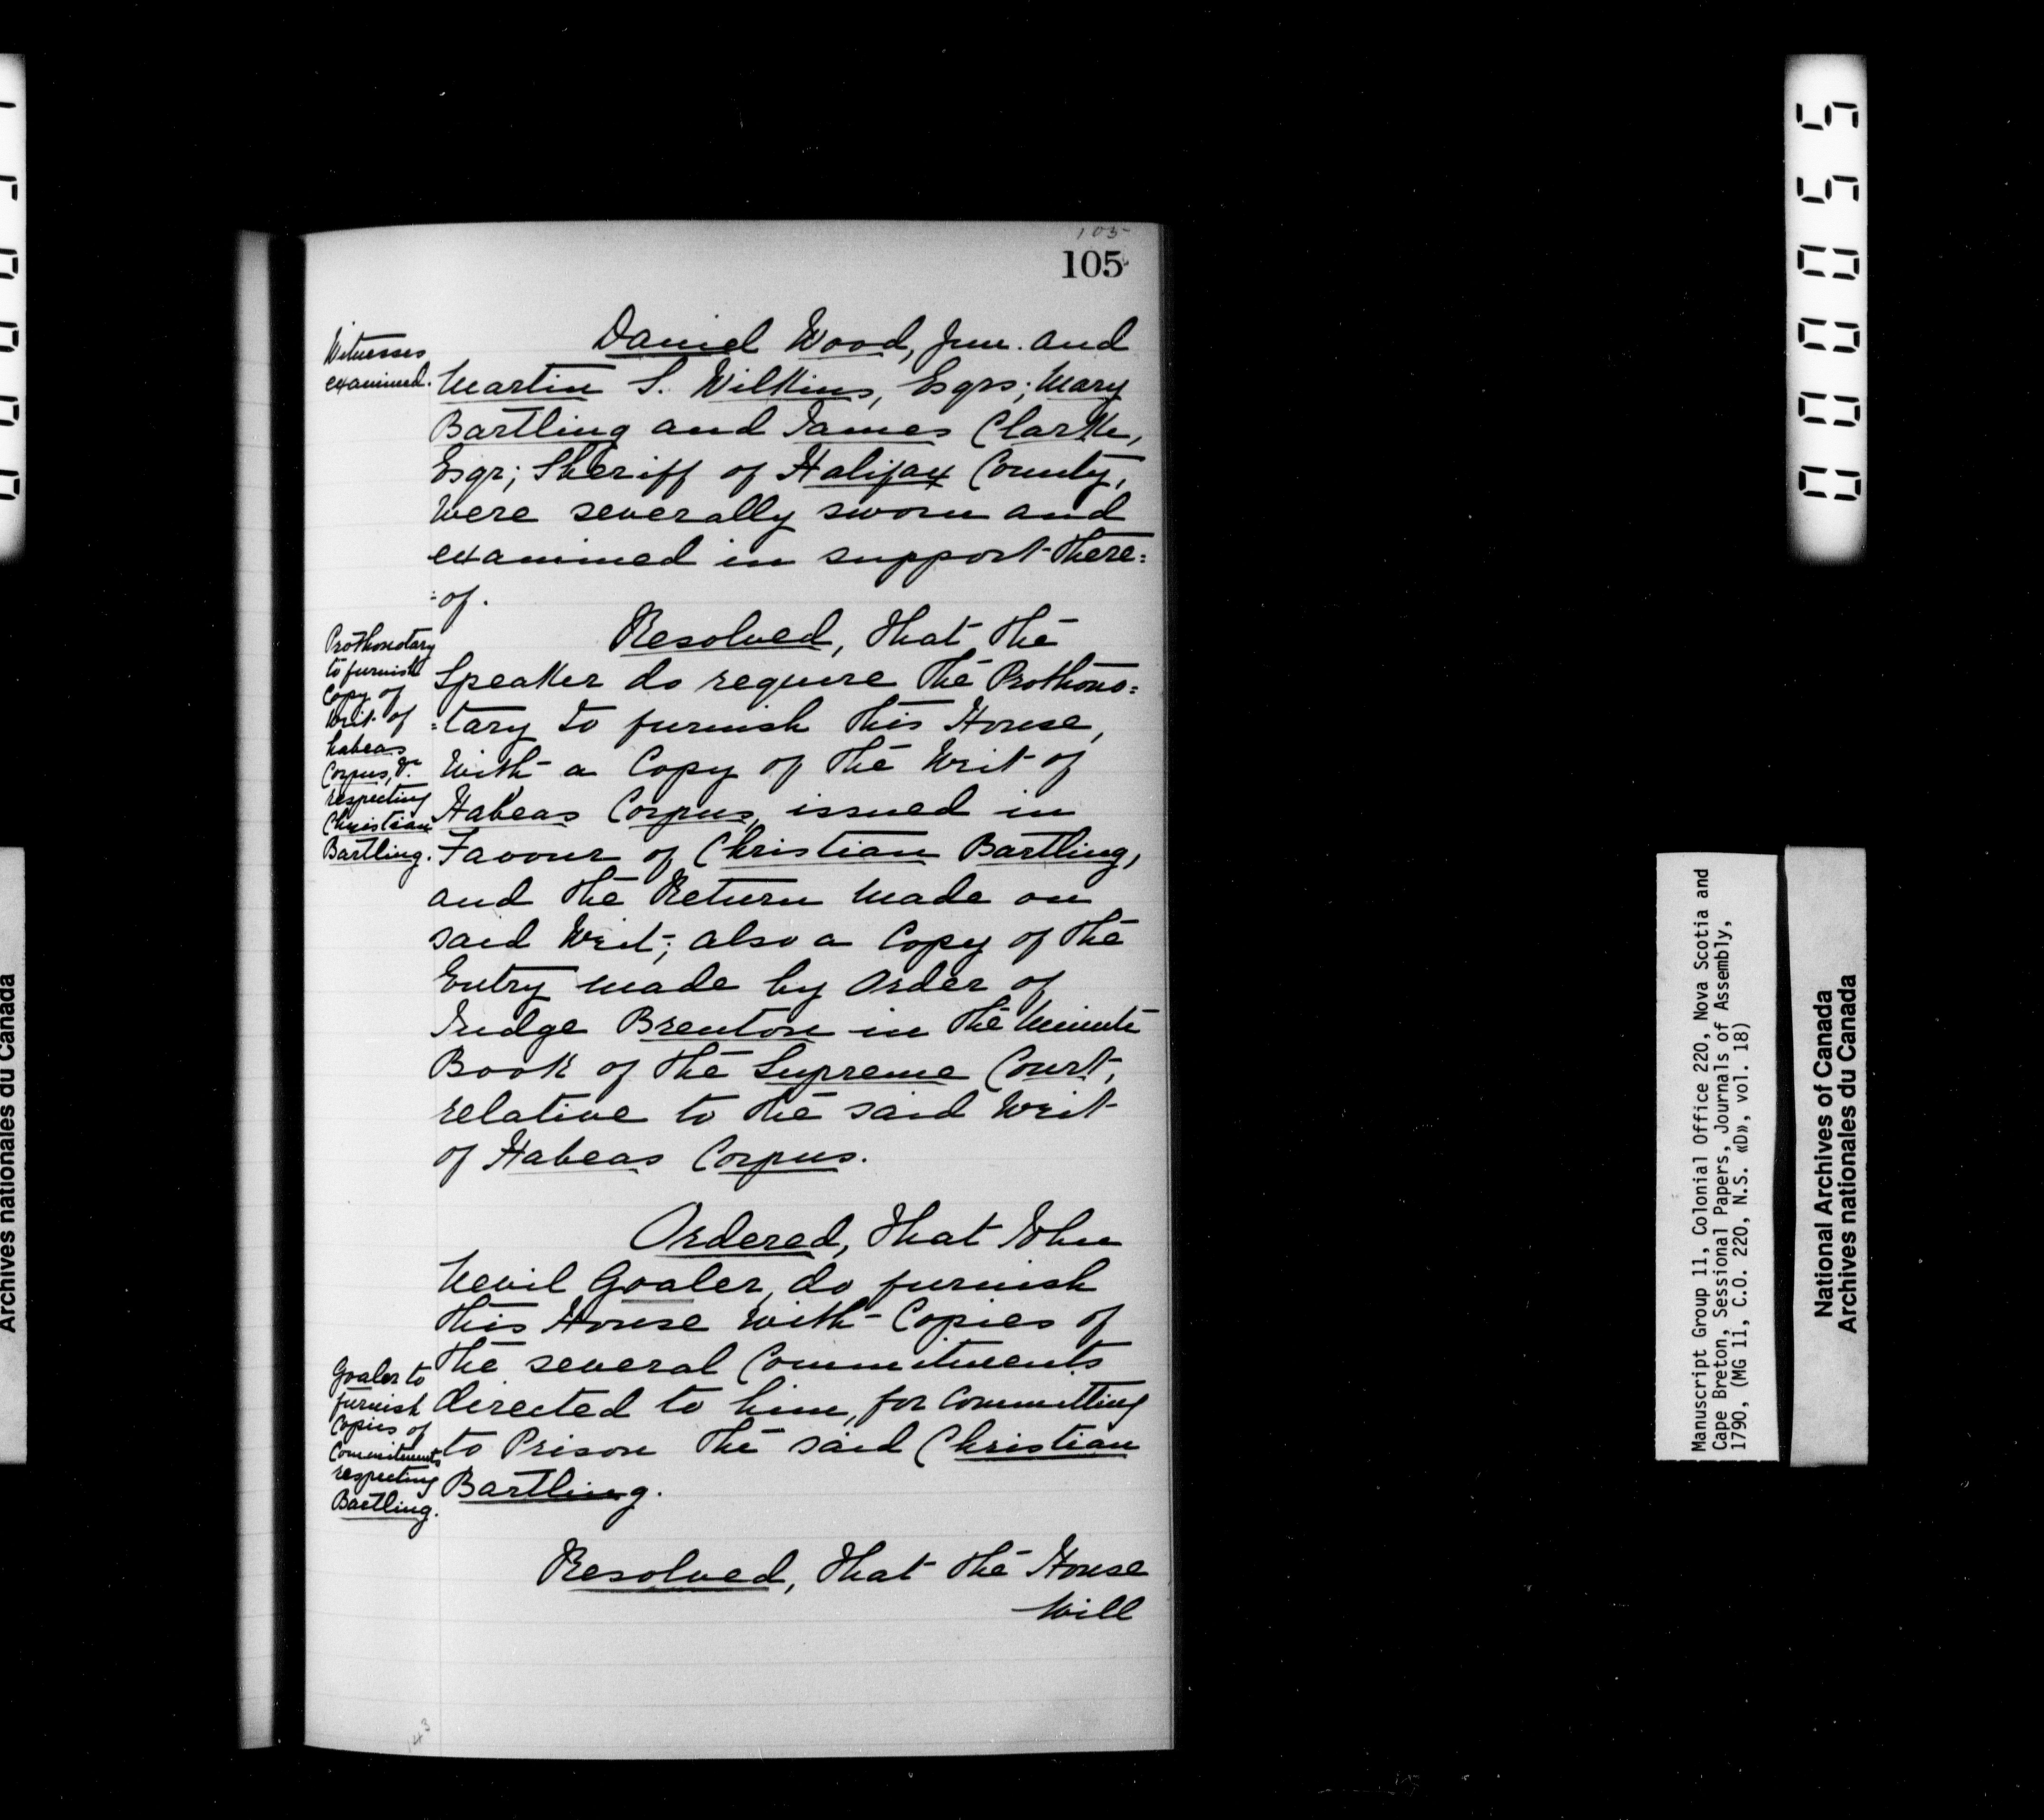 105
105
Witnesses
examined.
Daniel Wood, Junr. and
Martin S. Wilkins, Esqrs; Mary
Bartling and James Clarke,
Esqr; Sheriff of Halifax County,
were severally sworn and
examined in support there=
=of.
Prothonotary
to furnish
Copy of
Writ of
habeas
Corpus, &c
respecting
Christian
Bartling.
Resolved, that the
Speaker do require the Prothono=
=tary to furnish this House,
with a Copy of the Writ of
Habeas Corpus, issued in
Favour of Christian Bartling,
and the Return made on
said Writ; also a Copy of the
Entry made by Order of
Judge Brenton in the Minute
Book of the Supreme Court,
relative to the said Writ
of Habeas Corpus.
Ordered, that John
Nevil Goaler, do furnish
this House with Copies of
the several Commitments
directed to him, for committing
to Prison the said Christian
Bartling.
Goaler to
furnish
Copies of
Commitments
respecting
Bartling.
Resolved, that the House
will
143
000055
Manuscript Group 11, Colonial Office 220, Nova Scotia and
Cape Breton, Sessional Papers, Journals of Assembly,
1790, (MG 11, C.O. 220, N.S. «D», vol. 18)
National Archives of Canada
Archives nationales du Canada
Archives nationales du Canada